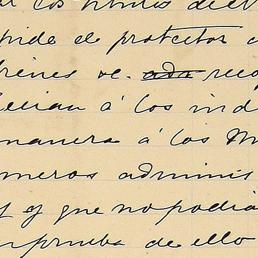 los
pide el protector
se ada reco
á los ind
manera á los M
meros adminis
y que no podia
prueba de ello